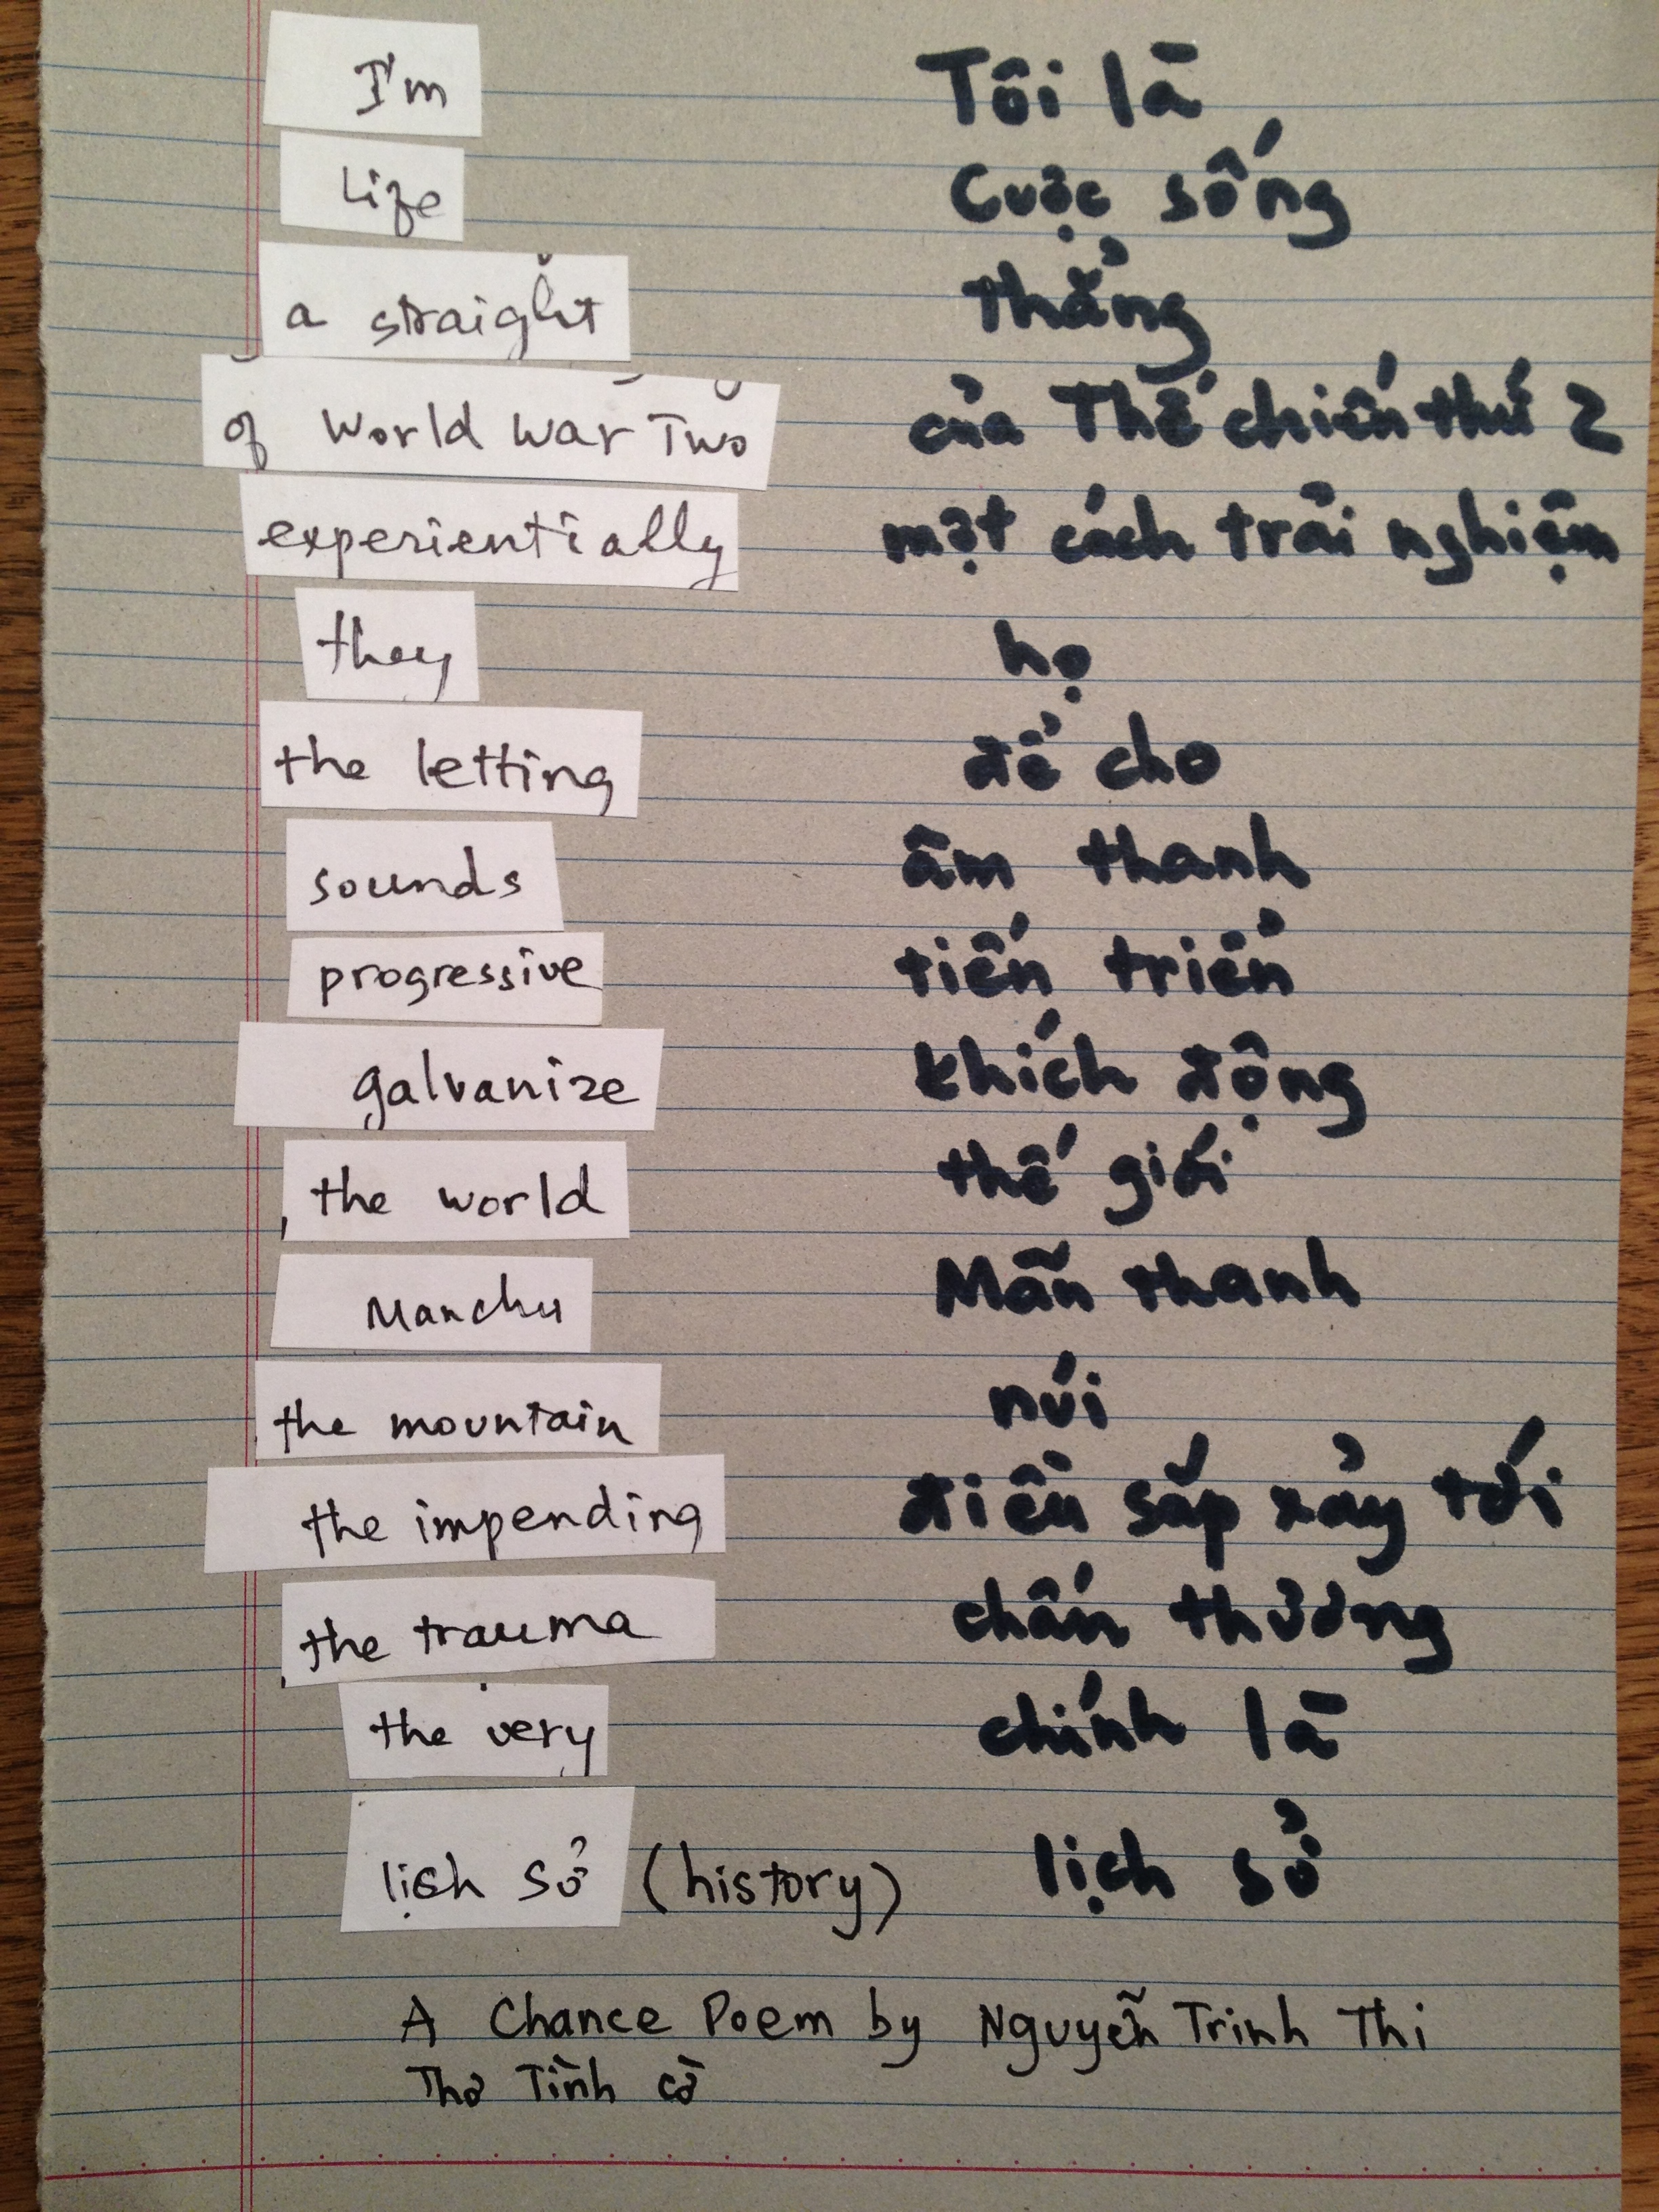 I'm Tôi là
Life Cuộc sống
a straight thẳng
of World War Two của Thế chiến thứ 2
experientially một cách trải nghiệm
they họ
the letting để cho
sounds âm thanh
progressive tiến triển
galvanize khích động
the world thế giới
Manchu Mãn thanh
the mountain núi
the impending điều sắp xảy tới
the trauma chấn thương
the very chính là
lịch sử (history) lịch sử
A Chance Poem by Nguyễn Trinh Thi
Thơ Tình cờ